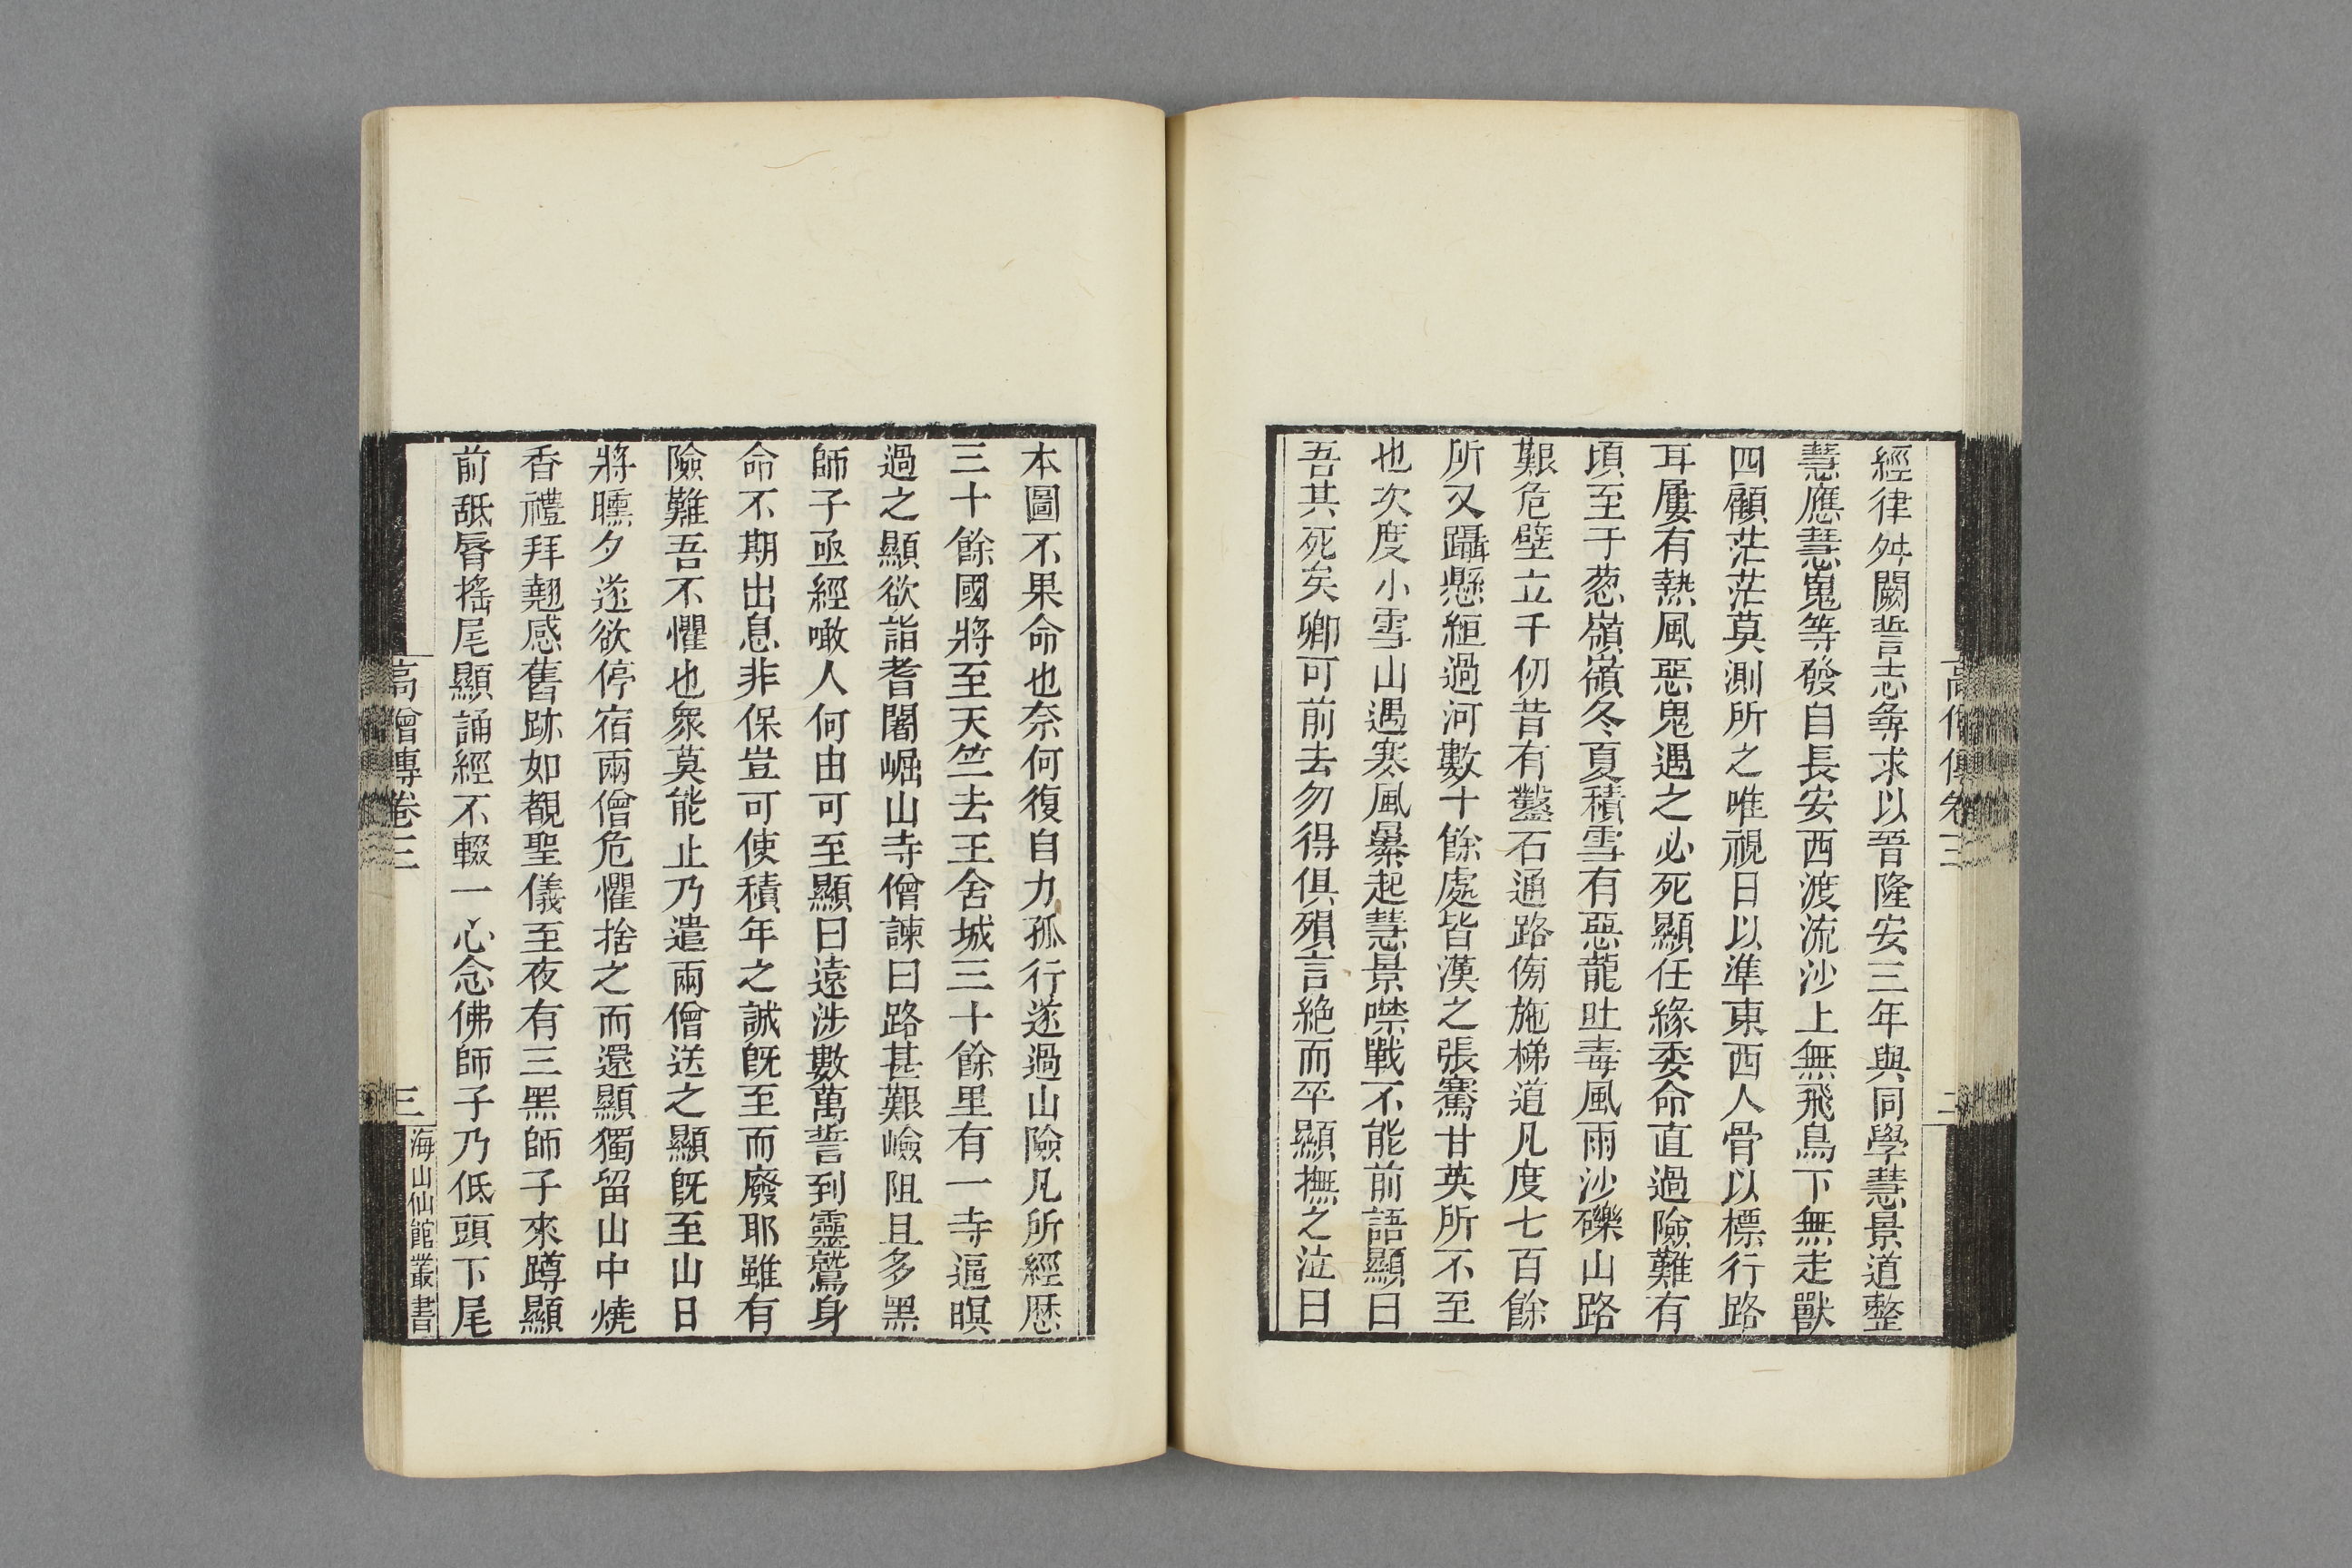 經律舛闕誓志尋求以晉隆安三年與同學慧景道整
慧應慧嵬等發自長安西渡流沙上無飛鳥下無走獸
四顧茫茫莫測所之唯視日以準東西人骨以標行路
耳屢有熱風惡鬼遇之必死顯任緣委命直過險難有
頃至于葱嶺嶺冬夏積雪有惡龍吐毒風雨沙礫山路
艱危壁立千仞昔有鑿石通路傍施梯道凡度七百餘
所又躡懸絙過河數十餘處皆漢之張騫甘英所不至
也次度小雪山遇寒風暴起慧景噤戰不能前語顯曰
吾其死矣卿可前去勿得俱殞言絕而卒顯撫之泣曰
本圖不果命也奈何復自力孤行遂過山險凡所經歷
三十餘國將至天竺去王舍城三十餘里有一寺逼暝
過之顯欲詣耆闍崛山寺僧諫曰路甚艱嶮阻且多黑
師子亟經噉人何由可至顯曰遠涉數萬誓到靈鷲身
命不期出息非保豈可使積年之誠旣至而廢耶雖有
險難吾不懼也衆莫能止乃遣兩僧送之顯旣至山日
將曛夕遂欲停宿兩僧危懼捨之而還顯獨留山中燒
香禮拜翹感舊跡如覩聖儀至夜有三黑師子來蹲顯
前舐脣搖尾顯誦經不輟一心念佛師子乃低頭下尾
高僧傳卷三
三
海山仙館叢書